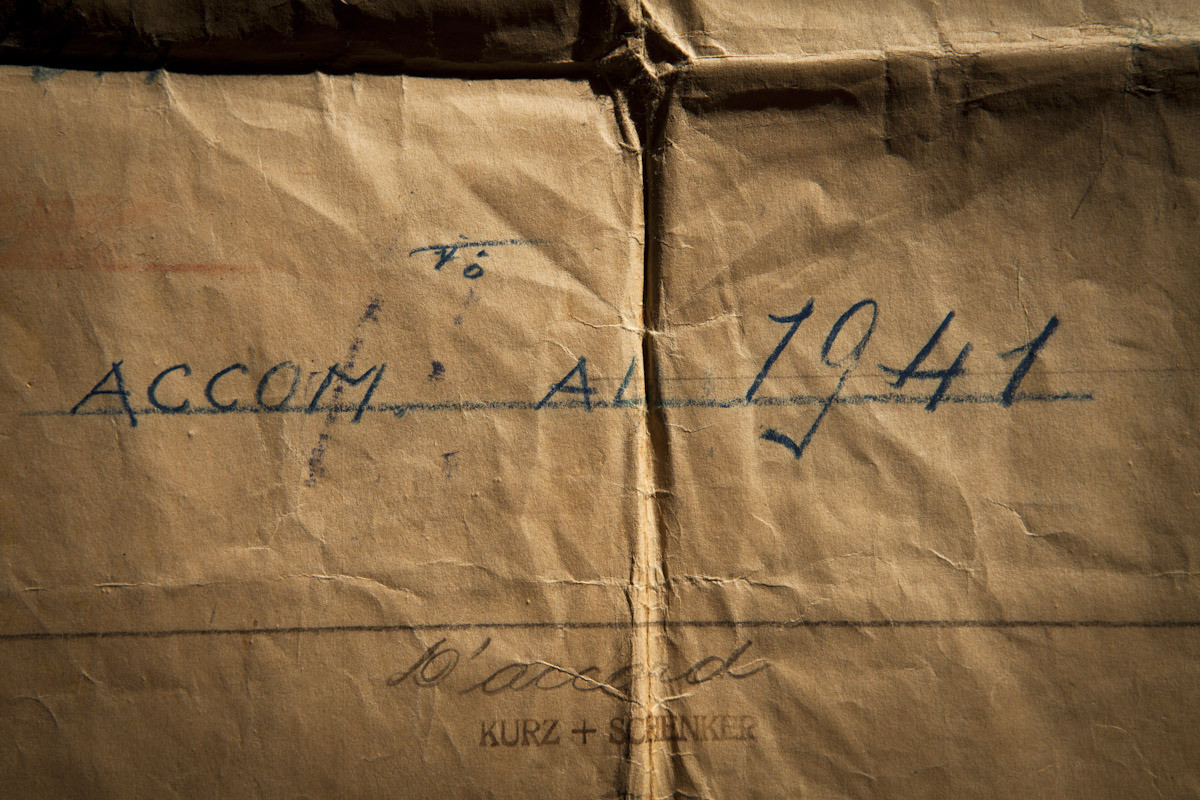 ACCOM. AL 1941
D'accord
KURZ + SCHENKER